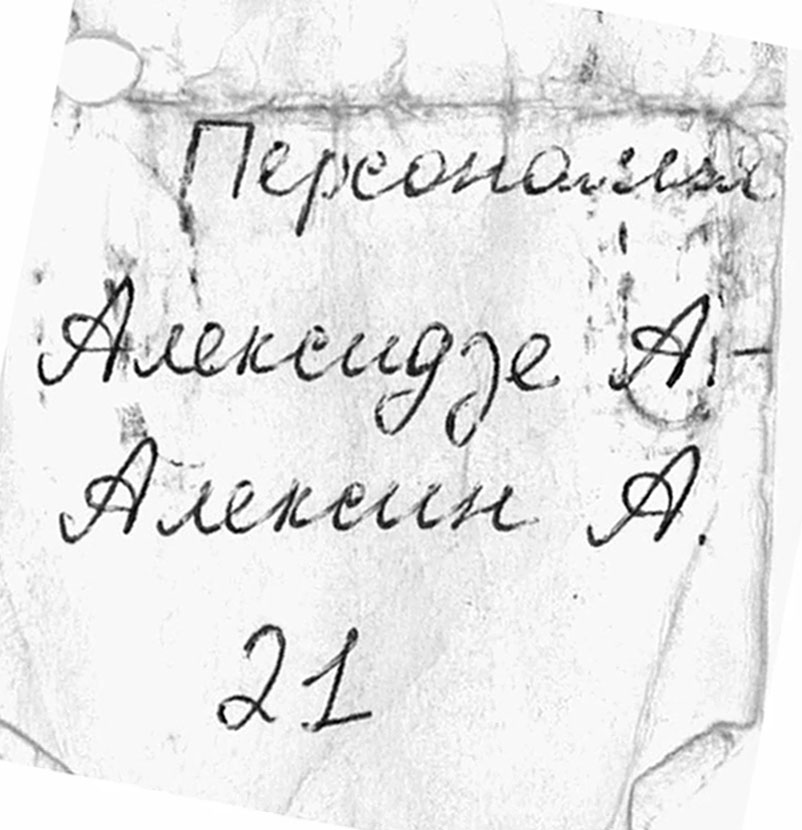 Персоналия
Алексидзе А. –
Алексин А.
21